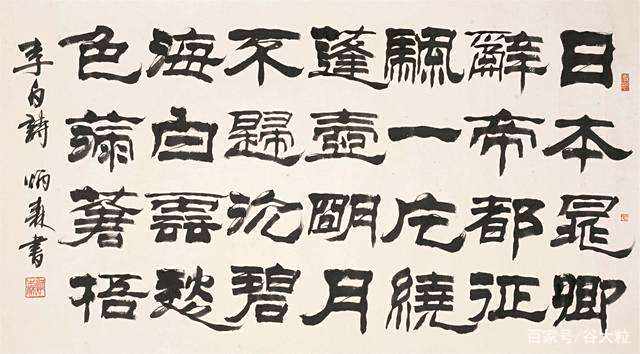 日本晁卿
辭帝都征
颿一片繞
蓬壺明月
不歸沈碧
海白雲愁
色滿蒼梧
李白詩 炳森書
百家号/谷大粒